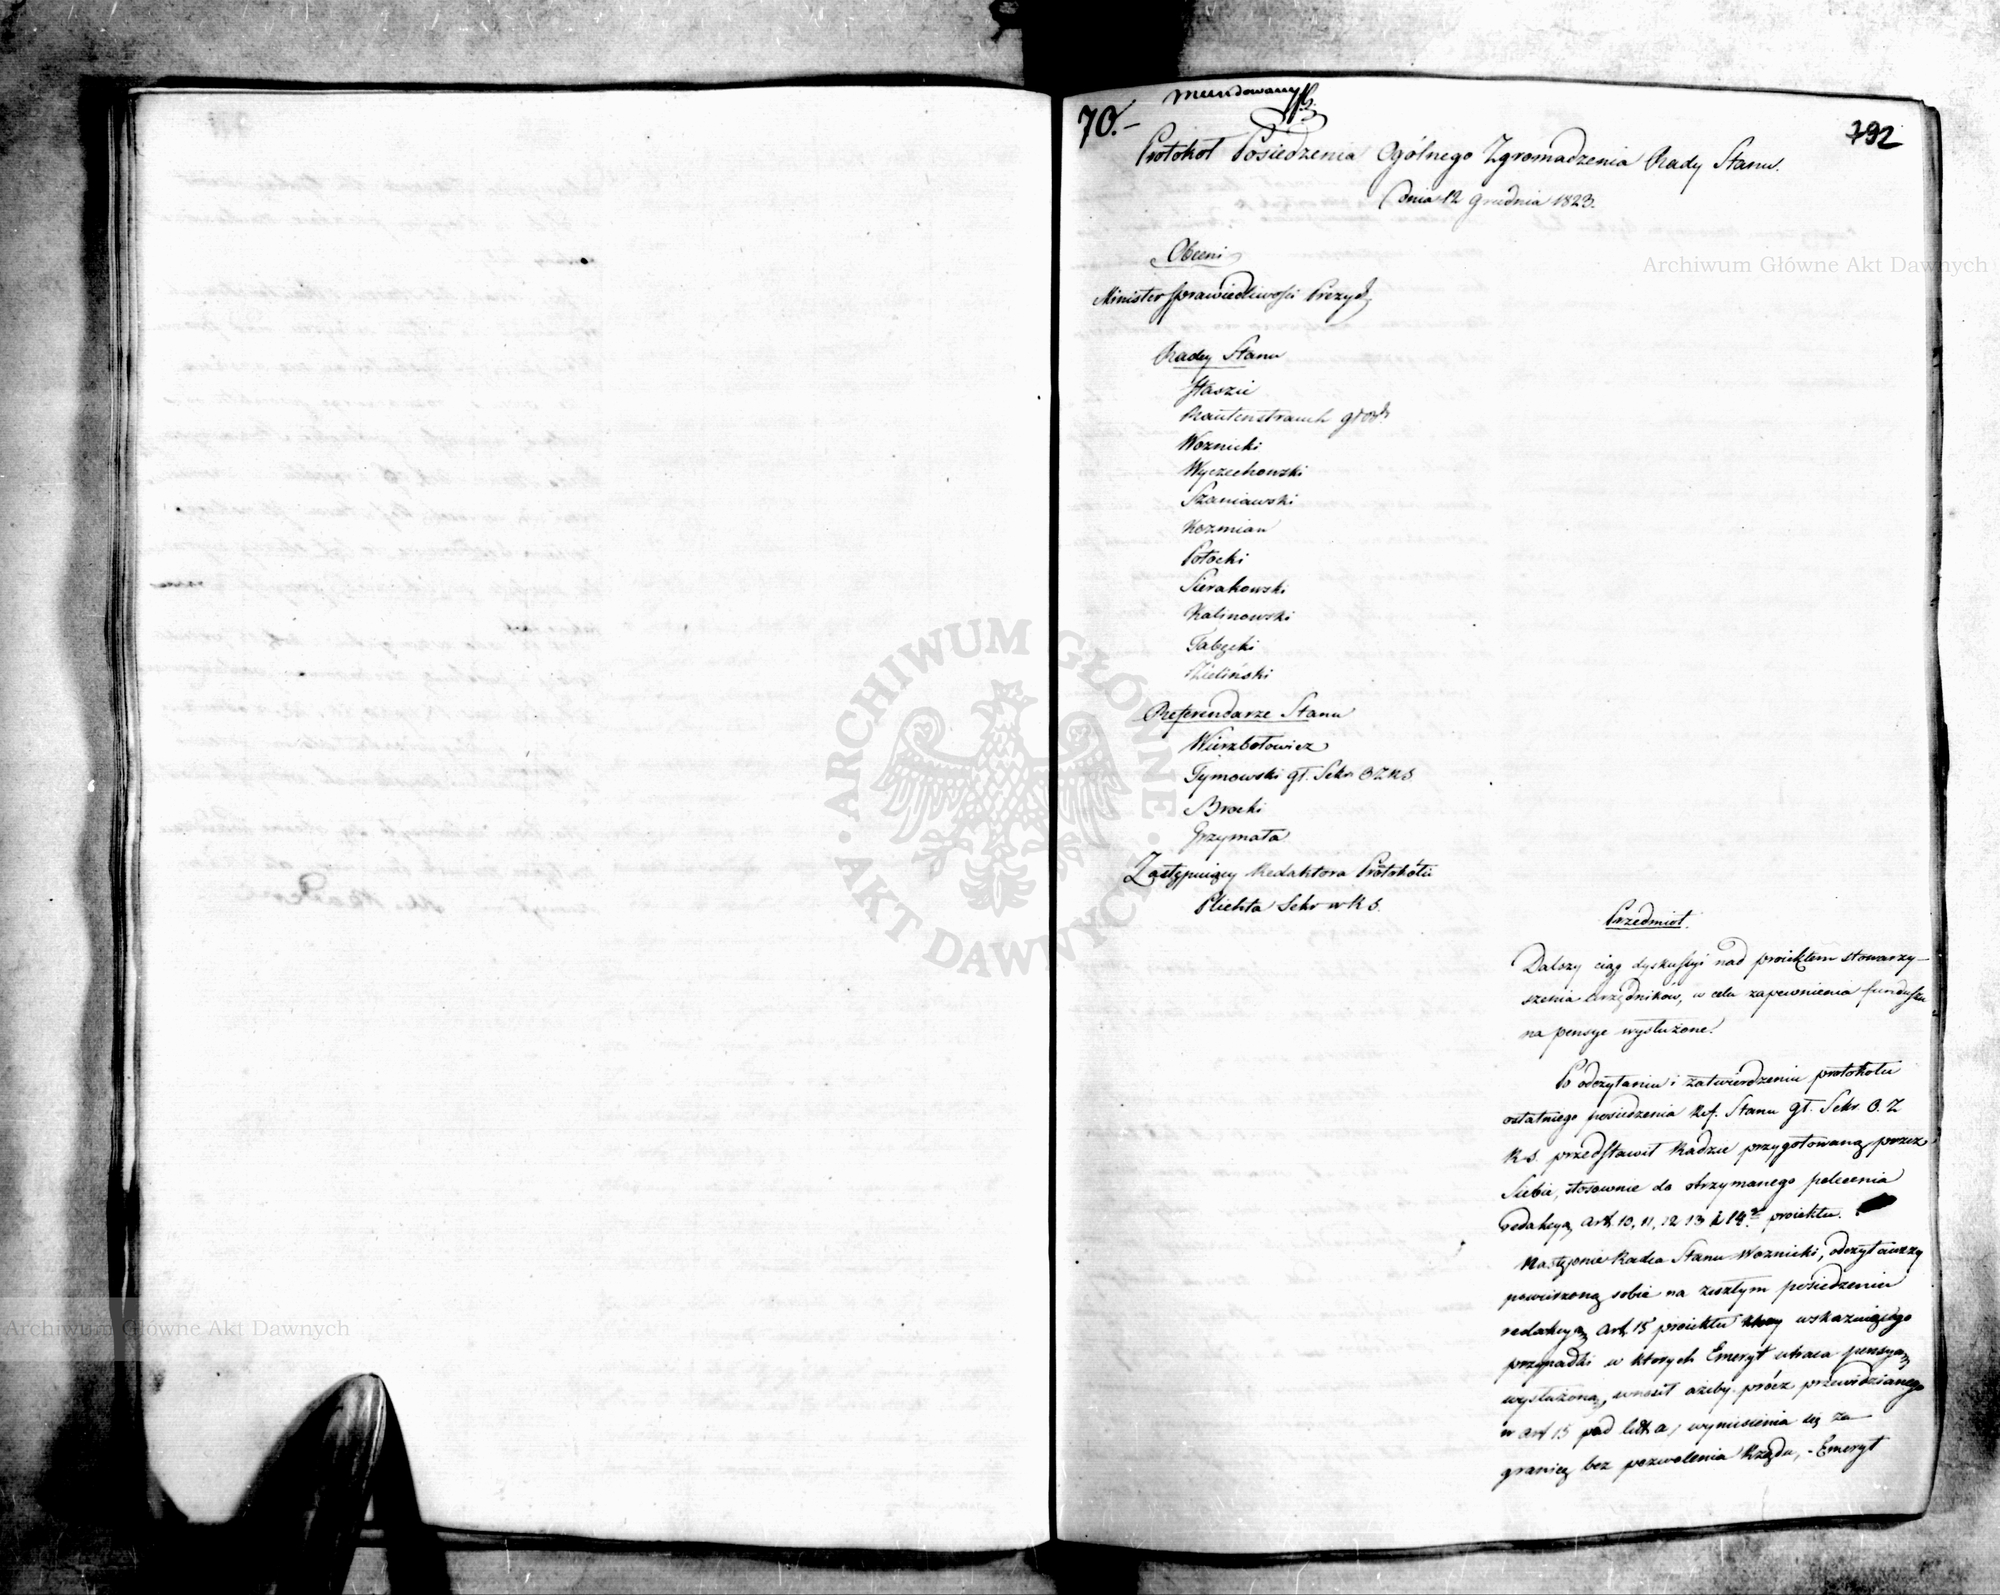 70.-
mundowany
192
Protokoł Posiedzenia Ogólnego Zgromadzenia Rady Stanu.
Dnia 12 Grudnia 1823.
Obecni
Minister Sprawiedliwości Prezyd.
Radcy Stanu
Staszic
Rautenstrauch
Woznicki
Wyczechowski
Szaniawski
Kozmian
Potocki
Sierakowski
Kalinowski
Tabęcki
Zieliński
Referendarze Stanu
Wierzbołowicz
Tymowski gł. Sekr. O Z R S.
Brocki
Grzymała
Zastępuiący Redaktora Protokółu
Plichta Sekr w R S.
Przedmiot.
Dalszy ciąg dyskussyi nad proiektem stowarzy-
szenia urzędników, w celu zapewnienia funduszu
na pensye wysłużone.
Po odczytaniu i zatwierdzeniu protokołu
ostatniego posiedzenia Ref. Stanu gł. Sekr. O. Z
R S. przedstawił Radzie przygotowaną przez
Siebie, stosownie do otrzymanego polecenia
redakcyą art. 10, 11, 12 13 i 14 proiektu.
Następnie Radca Stanu Woznicki, odczytawszy
powierzoną sobie na zeszłym posiedzeniu
redakcyą art. 15 proiektu wskazuiącego
przypadki w ktorych Emeryt utraca pensyą
wysłużoną, wnosił ażeby prócz przewidzianego
w art 15 pod litt. a, wyniesienia się za
granicę bez pozwolenia Rządu, - Emeryt
Archiwum Główne Akt Dawnych
Archiwum Główne Akt Dawnych
ARCHIWUM GŁÓWNE AKT DAWNYCH